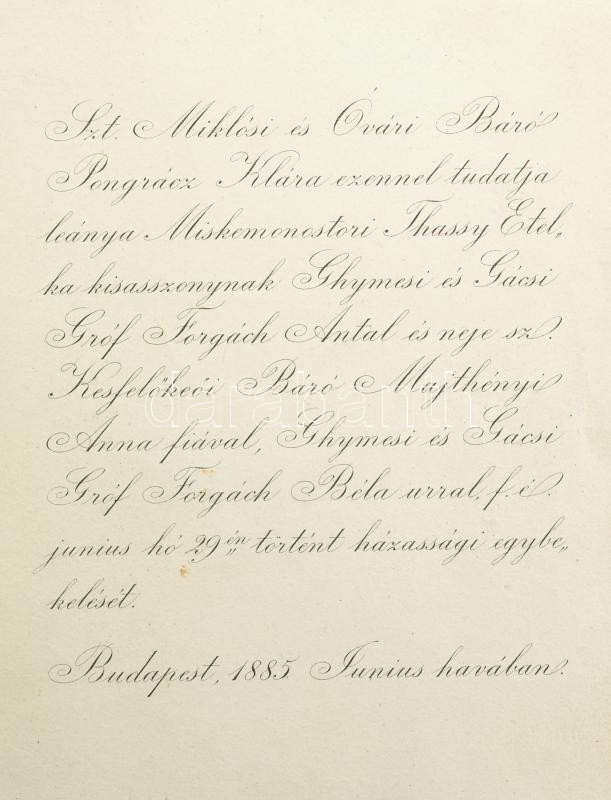 Szt. Miklósi és Óvári Báró
Pongrácz Klára ezennel tudatja
leánya Miskemonostori Thassy Etel„
ka kisasszonynak Ghymesi és Gácsi
Gróf Forgách Antal és neje sz.
Kesfelőkeői Báró Majthényi
darabanth
Anna fiával, Ghymesi és Gácsi
Gróf Forgách Béla urral, f. é.
junius hó 29én történt házassági egybe„
kelését.
Budapest, 1885 Junius havában.